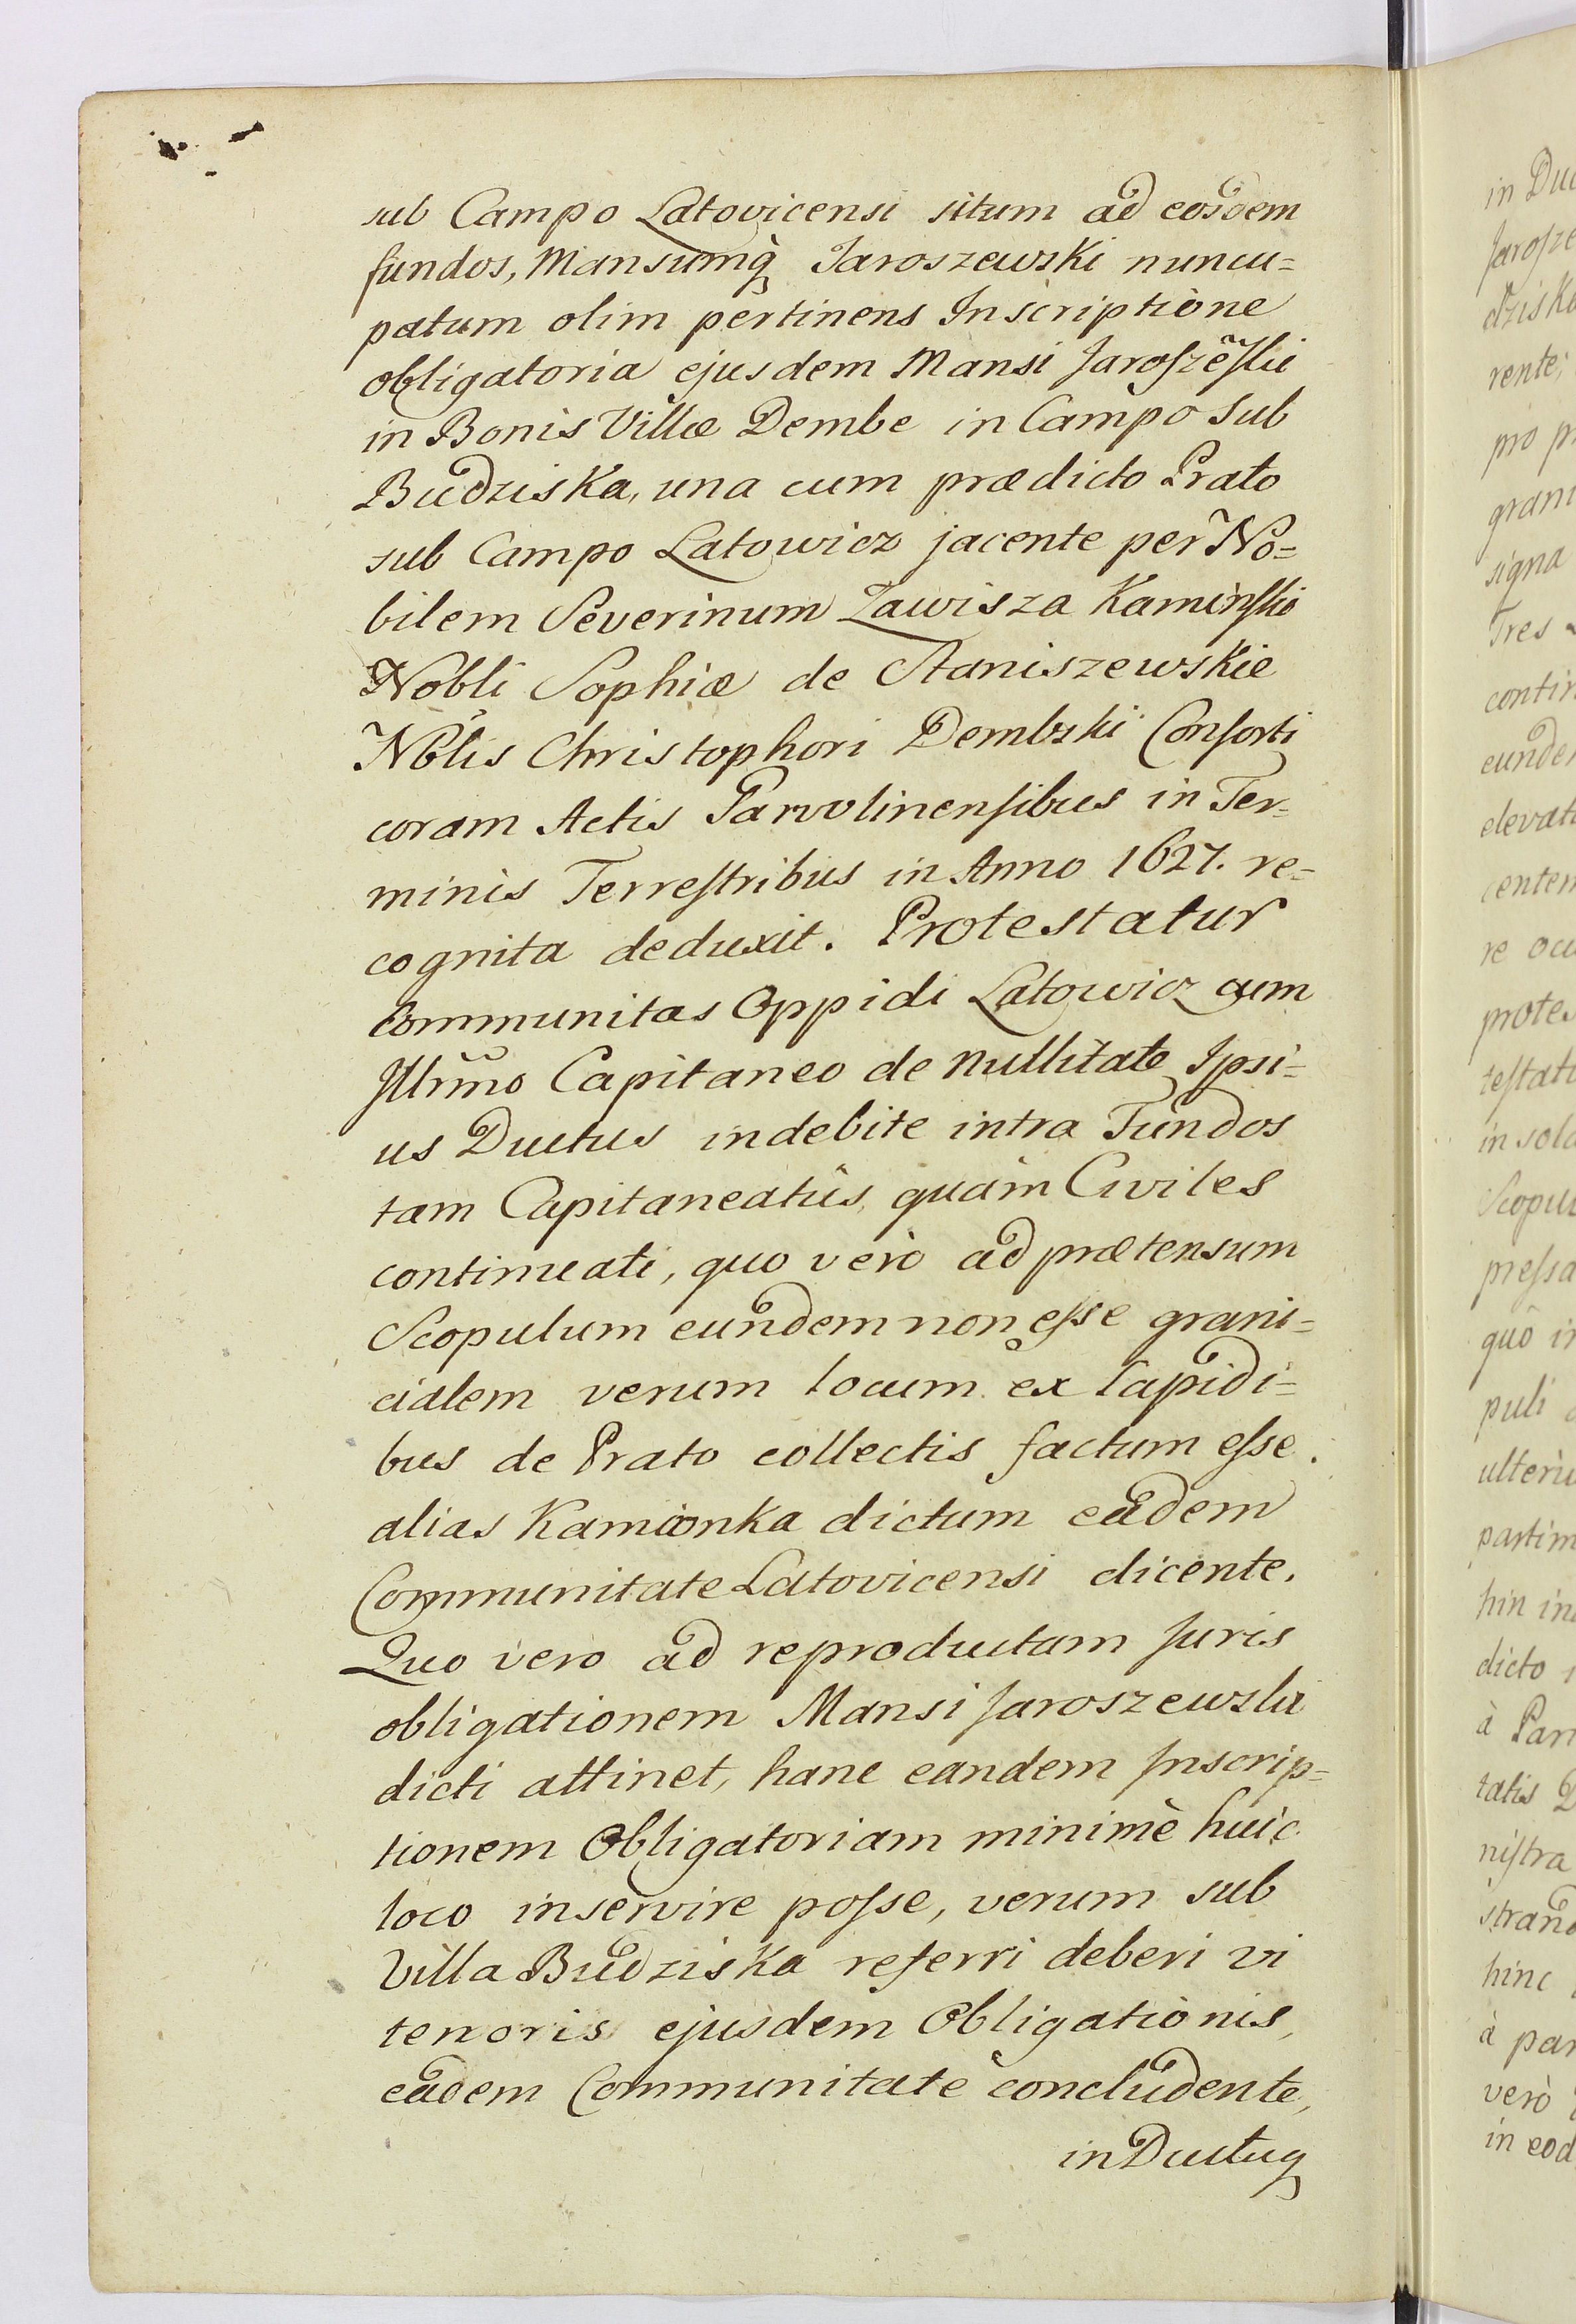 sub Campo Latovicensi situm ad eosdem
fundos, Mansumq̀ Jaroszewski nuncu=
patum olim pertinens Inscriptione
obligatoria ejusdem Mansi Jaroſzẽſkii
in Bonis Villæ Dembe in Campo sub
Budziska, una cum prædicto Prato
sub Campo Latowicz jacente per No=
bilem Severinum Zawisza Kaminſki
Nobli Sophiæ de Staniszewskie
Noblis Christophori Dembski Conſorti
coram Actis Parvolinenſibus in Ter=
minis Terreſtribus in Anno 1627. re=
cognita deduxit. Protestatur
Communitas Oppidi Latowicz cum
Illrimo Capitaneo de nullitate Ipsi=
us Ductus indebite intra Fundos
tam Capitaneatûs, quàm Civiles
continuati, quo verò ad prætensum
Scopulum eundem non eſse grani=
cialem verum locum ex lapidi=
bus de Prato collectis factum eſse.
alias Kamionka dictum eâdem
Communitate Latovicensi dicente.
Quo vero ad reproductam Juris
obligationem Mansi Jaroszewski
dicti attinet, hanc eandem Inscrip=
tionem Obligatoriam minimè huic
loco inservire poſse, verum sub
Villa Budziska referri deberi vi
tenoris ejusdem Obligationis,
eâdem Communitate concludente,
in Ductuq

in Duc
Jaroſze
dziska
rente;
pro p
grani
signa
Tres
contin
eunde
elevat
centem
re ocu
protes
teſtat
in sol
Scopul
preſsa
quô in
puli
ulteriu
partim
hin in
dicto
à Par
tatis D
niſtra
strand
hinc
à par
verò
in eod